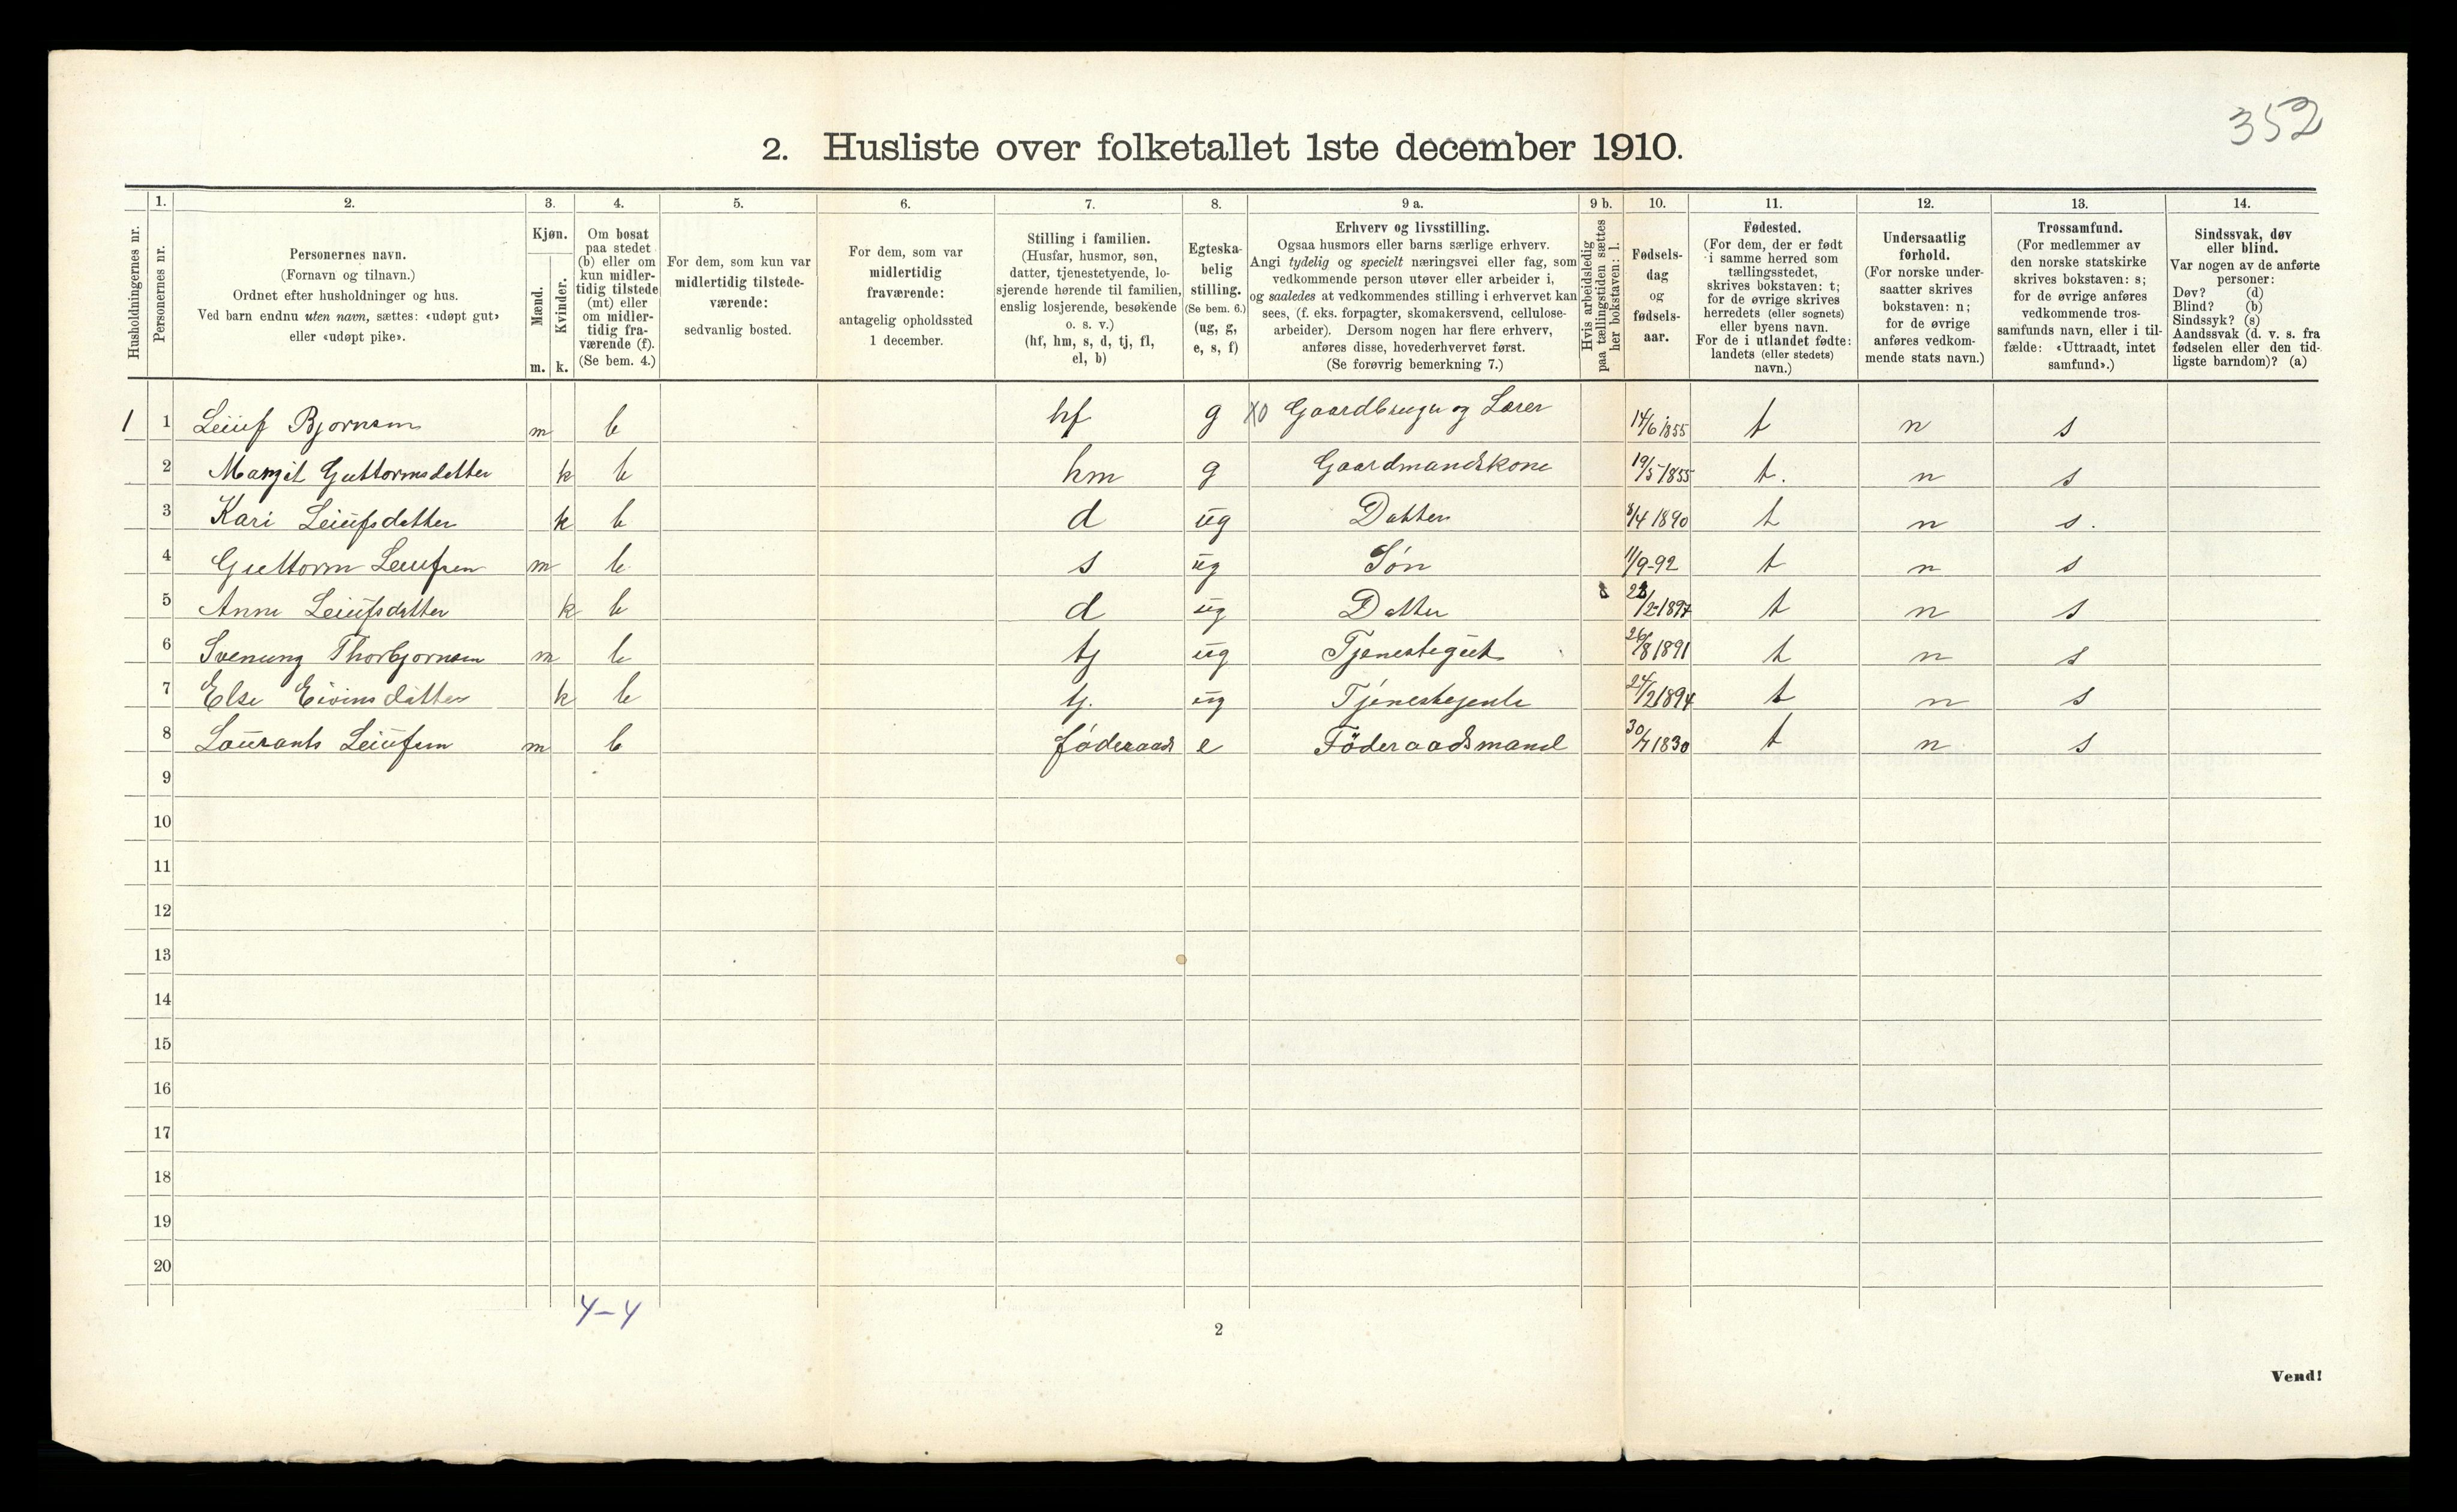 352
2. Husliste over folketallet 1ste december 1910.
Husholdningernes nr.
Personernes nr.
1.
2.
Personernes navn.
(Fornavn og tilnavn.)
Ordnet efter husholdninger og hus.
Ved barn endnu uten navn, sættes: «udøpt gut»
eller «udøpt pike».
3.
Kjøn.
Mænd.
Kvinder.
m. k.
4.
Om bosat
paa stedet
(b) eller om
kun midler-
tidig tilstede
(mt) eller
om midler-
tidig fra-
værende (f).
(Se bem. 4.)
5.
For dem, som kun var
midlertidig tilstede-
værende:
sedvanlig bosted.
6.
For dem, som var
midlertidig
fraværende:
antagelig opholdssted
1 december.
7.
Stilling i familien.
(Husfar, husmor, søn,
datter, tjenestetyende, lo-
sjerende hørende til familien,
enslig losjerende, besøkende
o. s. v.)
(hf, hm, s, d, tj, fl,
el, b)
8.
Egteska-
belig
stilling.
(Se bem. 6.)
(ug, g,
e, s, f)
9 a.
Erhverv og livsstilling.
Ogsaa husmors eller barns særlige erhverv.
Angi tydelig og specielt næringsvei eller fag, som
vedkommende person utøver eller arbeider i,
og saaledes at vedkommendes stilling i erhvervet kan
sees, (f. eks. forpagter, skomakersvend, cellulose-
arbeider). Dersom nogen har flere erhverv,
anføres disse, hovederhvervet først.
(Se forøvrig bemerkning 7.)
9 b.
Hvis arbeidsledig
paa tællingstiden sættes
her bokstaven: l.
10.
Fødsels-
dag
og
fødsels-
aar.
11.
Fødested.
(For dem, der er født
i samme herred som
tællingsstedet,
skrives bokstaven: t;
for de øvrige skrives
herredets (eller sognets)
eller byens navn.
For de i utlandet fødte:
landets (eller stedets)
navn.)
12.
Undersaatlig
forhold.
(For norske under-
saatter skrives
bokstaven: n;
for de øvrige
anføres vedkom-
mende stats navn.)
13.
Trossamfund.
(For medlemmer av
den norske statskirke
skrives bokstaven: s;
for de øvrige anføres
vedkommende tros-
samfunds navn, eller i til-
fælde: «Uttraadt, intet
samfund».)
14.
Sindssvak, døv
eller blind.
Var nogen av de anførte
personer:
Døv? (d)
Blind? (b)
Sindssyk? (s)
Aandssvak (d. v. s. fra
fødselen eller den tid-
ligste barndom)? (a)
1 1 Leiuf Bjornsen m b hf g X0 Gaardbruger og Lærer 14/6 1855 t n s
2 Margit Guttormsdatter k b hm g Gaardmandskone 19/5 1855 t. n s
3 Kari Leiufsdatter k b d ug Datter 8/4 1890 t n s.
4 Guttorm Leiufsen m b s ug Søn 11/9-92 t n s
5 Anne Leiufsdatter k b d ug Datter /2-1897 t n s
6 Svenung Thorbjornsen m b tj ug Tjenestegut 26/8 1891 t n s
7 Else Eivinsdatter k b tj. ug Tjenestejente 24/2 1894 t n s
8 Laurants Leiufsen m b føderaads e Föderaadsmand 30/ 1830 t n s
9
10
11
12
13
14
15
16
17
18
19
20
4-4
2
Vend!